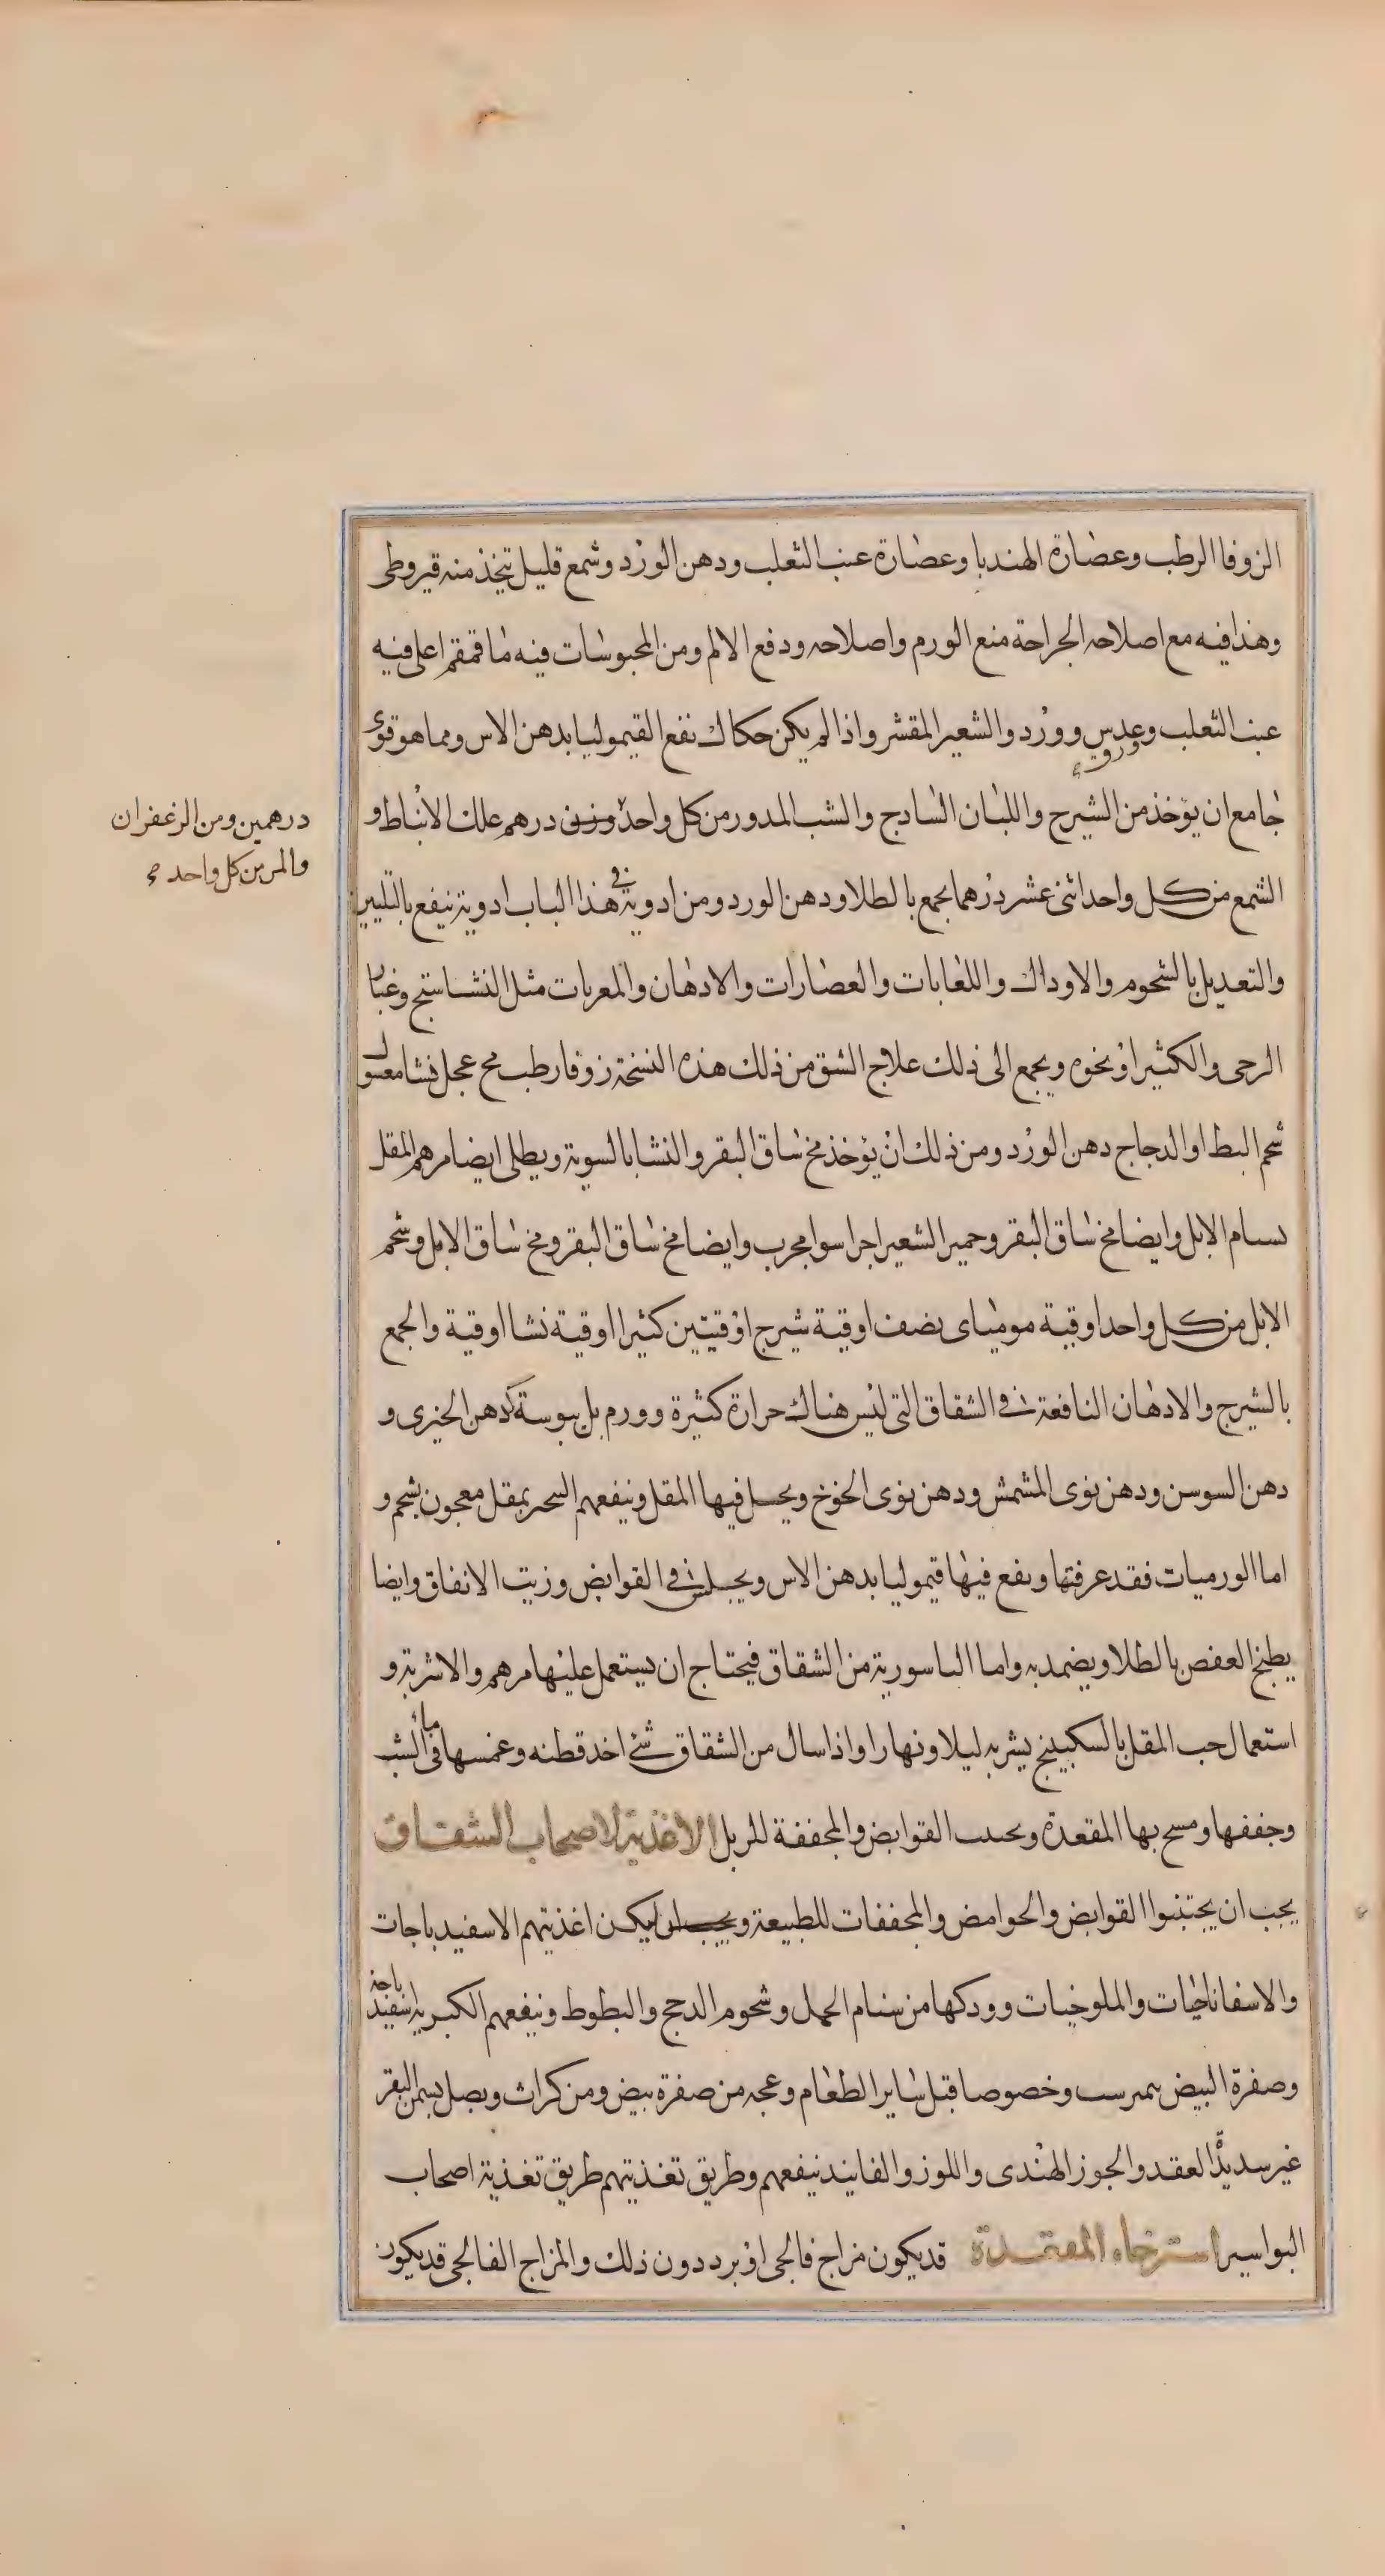 الزوفا الرطب وعصارة الهندبا وعصارة عنب الثعلب ودهن الورد وشمع قليل يتخذ منه قيروطى
وهذا فيه مع اصلاحه الجراحة منع الورم واصلاحه ودفع الالم ومن المحبوسات فيه ما قمقم اغلى فيه
عنب الثعلب وعدس وورد والشعير المقشر واذا لم يكن حكاك نفع القيموليا بدهن الاس ومما هو قوى
جامع ان يؤخذ من الشيرج واللبان السادج والشب المدور من كل واحد وزن درهم علك الانباط و
درهمين ومن الزعفران
والمر من كل واحد
الشمع من كل واحد اثنى عشر درهما يجمع بالطلا ودهن الورد ومن ادوية فى هذا الباب ادوية ينفع بالتليين
والتعديل بالشحوم والاوداك واللعابات والعصارات والادهان والمعريات مثل النشاستج وغبار
الرحى والكثيرا او نحوه ويجمع الى ذلك علاج الشق من ذلك هذه النسخة زوفا رطب مح عجل نشا مغسول
شحم البط او الدجاج دهن الورد ومن ذلك ان يؤخذ مخ ساق البقر والنشا بالسوية ويطلى ايضا مرهم المقل
بسنام الابل وايضا مخ ساق البقر وخمير الشعير اجرا سوا مجرب وايضا مخ ساق البقر ومخ ساق الابل وشحم
الابل من كل واحد اوقية موميای نصف اوقية شيرج اوقيتين كثيرا اوقية نشا اوقية والجمع
بالشيرج والادهان النافعة فى الشقاق التى ليس هناك حرارة كثيرة وورم بل يبوسة كدهن الخيرى و
دهن السوسن ودهن نوى المشمش ودهن نوى الخوخ ويحل فيها المقل وينفعهم السحر بمقل معجون بشحم و
اما الورميات فقد عرفتها وينفع فيها قيموليا بدهن الاس ويجلس فى القوابض وزيت الانفاق وايضا
يطبخ العفص بالطلا ويضمد به واما الباسورية من الشقاق فيحتاج ان يستعمل عليها مرهم والاشربة و
استعمال حب المقل بالسكبينج يشربه ليلا ونهارا واذا سال من الشقاق شئ اخد قطنه وغمسها فى ماء الشب
وجففها ومسح بها المقعدة ويجتنب القوابض والمجففة للزبل الاغذية لاصحاب الشقاق
يجب ان يجتنبوا القوابض والحوامض والمجففات للطبيعة ويجب ان ليكن اغذيتهم الاسفيدباجات
والاسفاناخيات والملوخيات وودكها من سنام الجمل وشحوم الدجج والبطوط وينفعهم الكبريه اسفيد باجة
وصفرة البيض نيمبرست وخصوصا قبل ساير الطعام وعجه من صفرة بيض ومن كراث وبصل بسمن البقر
غير سديد العقد والجوز الهندى واللوز والفانيد ينفعهم وطريق تغذيتهم طريق تغذية اصحاب
البواسير استرخاء المقعدة قد يكون مزاج فالجى او برد دون ذلك والمزاج الفالجى قد يكون